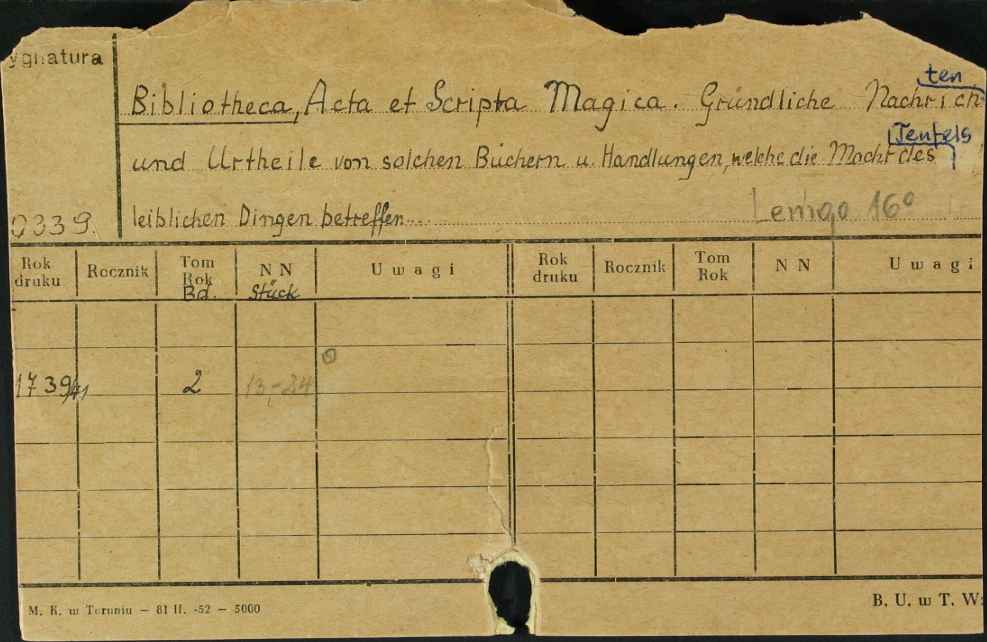 ygnatura
ten
Bibliotheca, Acta et Scripta Magica. Gründliche Nachrich
Teufels
und Urtheile von solchen Büchern u. Handlungen, welche die Macht des
0339. leiblichen Dingen betreffen... Lemgo 16°
Rok druku Rocznik Tom Rok Bd. NN Stück Uwagi Rok druku Rocznik Tom Rok NN Uwagi
1739/41 2 13-24
M. K. w Toruniu — 81 II. -52 — 5000 B. U. w T.